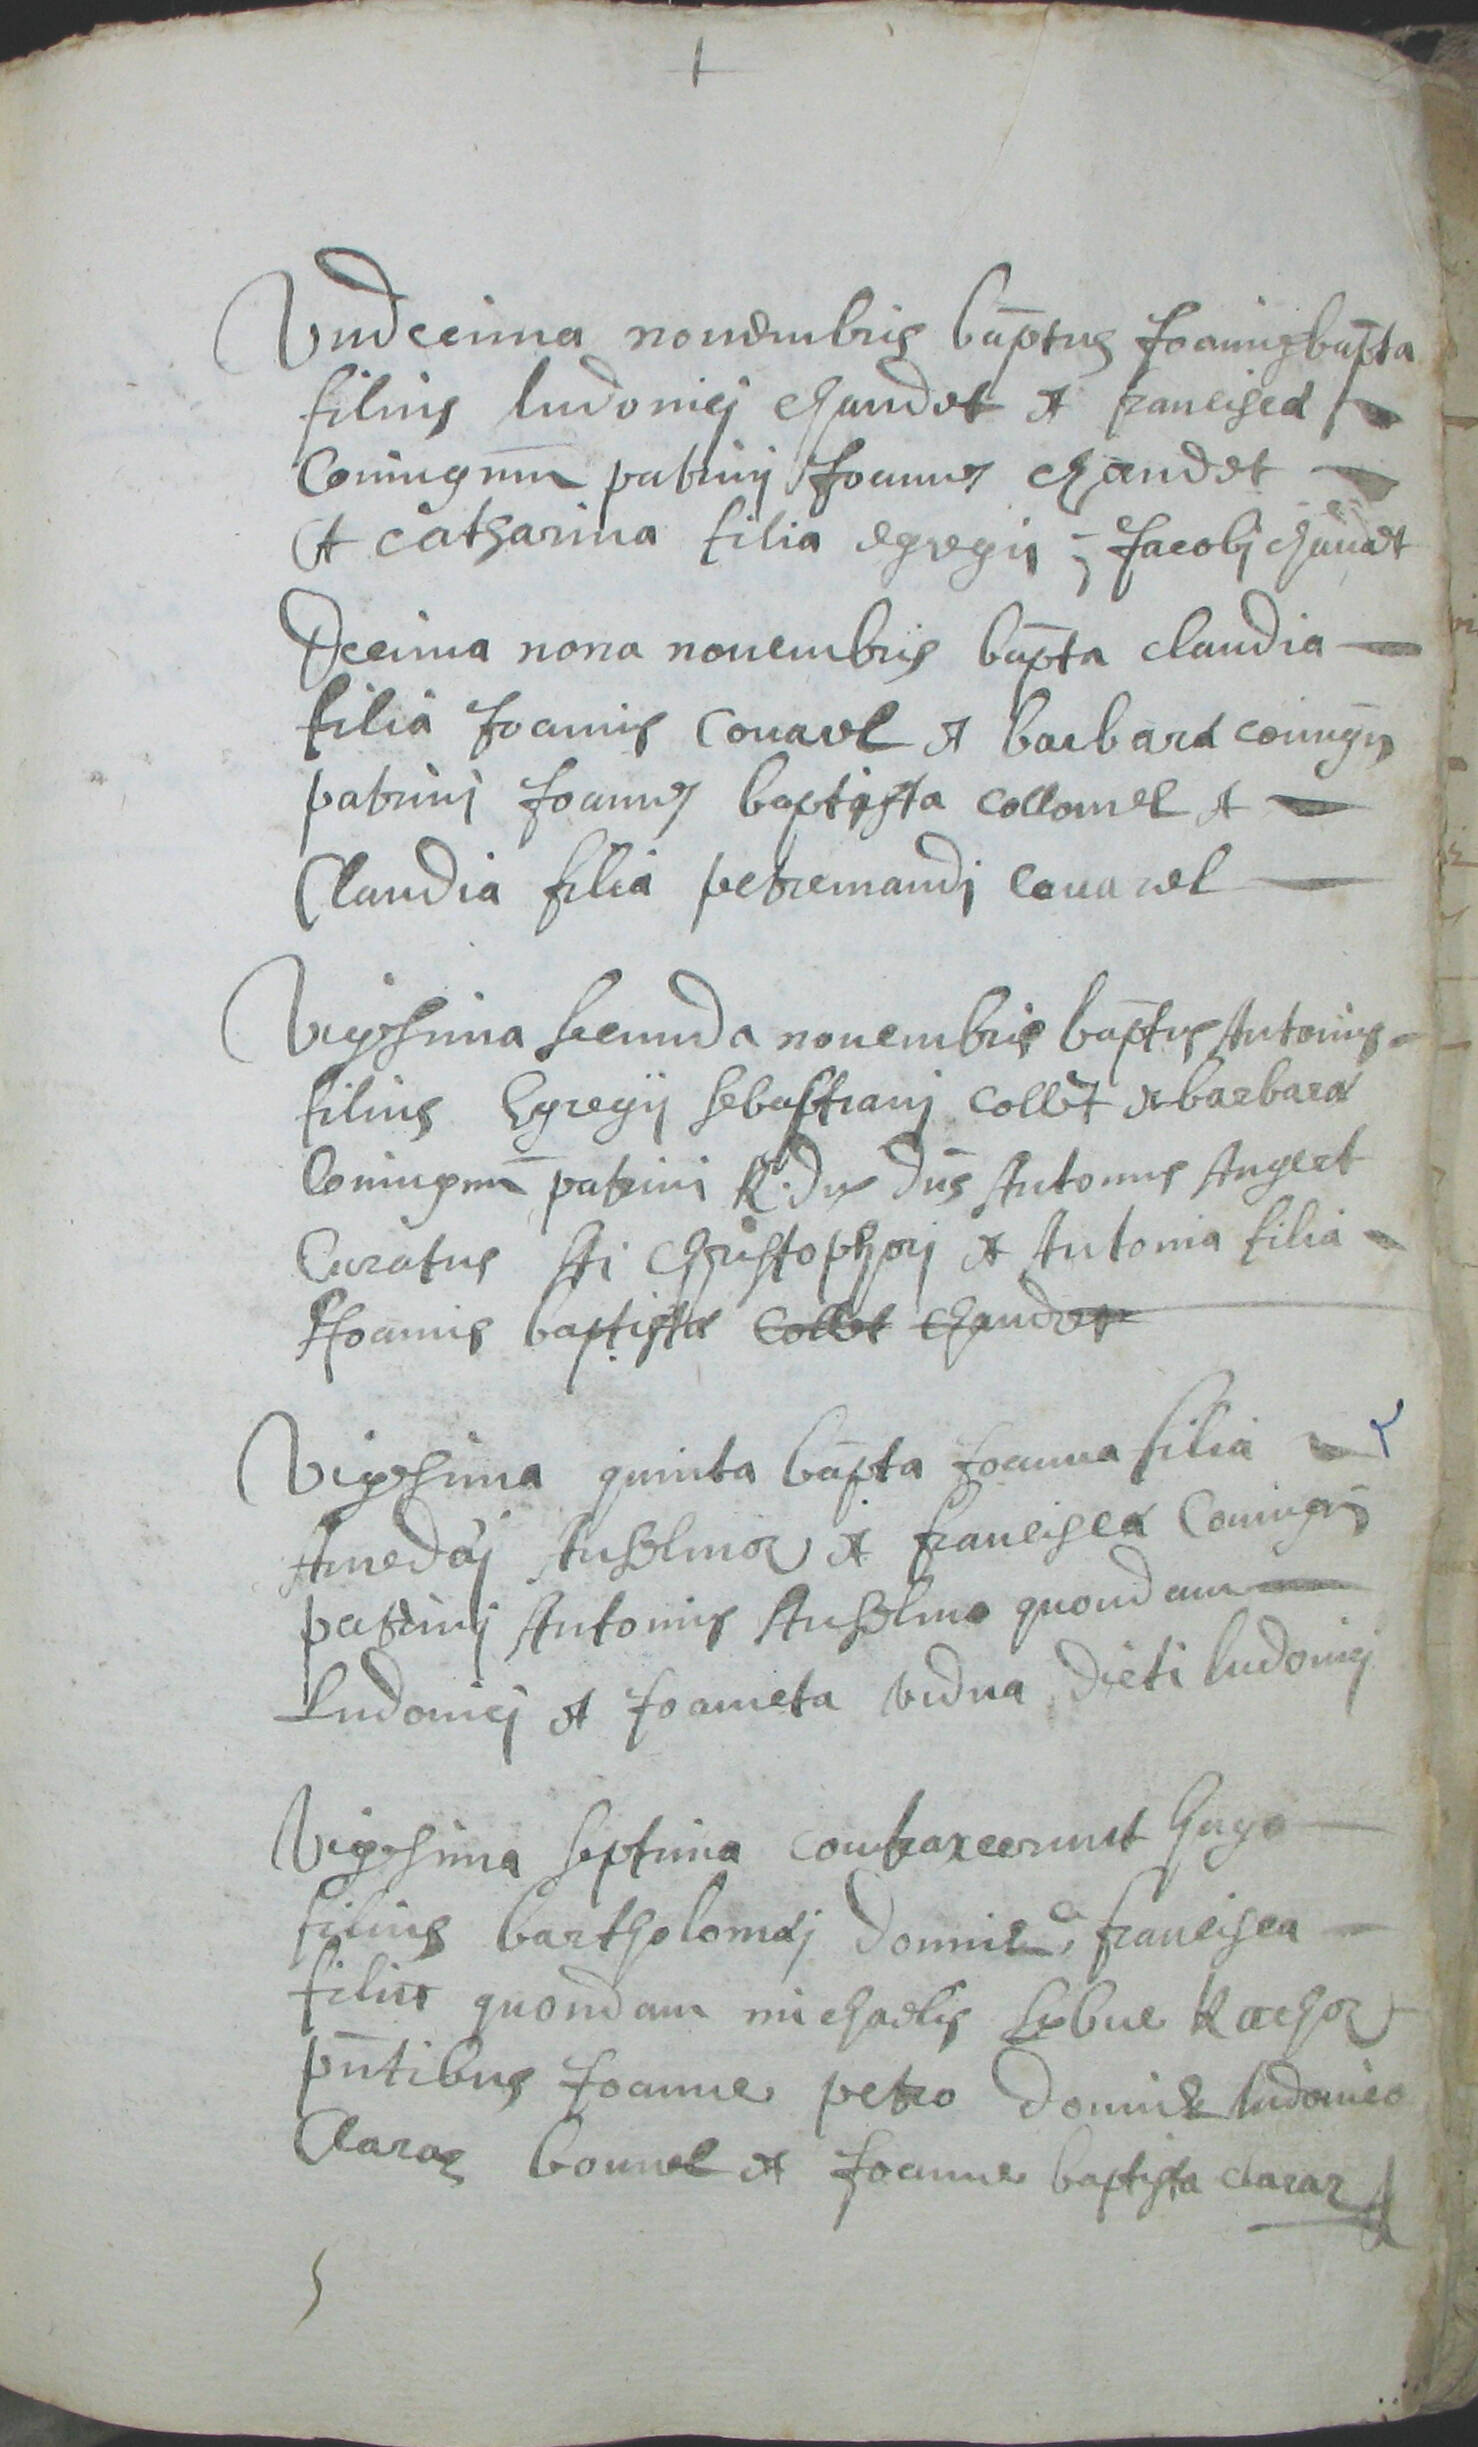 Undecima nouembris bāptus Joannisbāpta
filius ludouicj chaudet et franciscæ
Coniugum patrinj Joannes chaudet
et catharina filia egregij Jacobj chaudet
Decima nona nouembris bāpta claudia
filia Joannis Couavel et barbaræ coniugū
patrinj Joannes baptista collomel et
Claudia filia petremandj couavel
Vigesima secunda nouembris bāptus Antonius
filius Egregij sebastianj collet et barbaræ
Coniugum patrinj R. dus dūs Antonius Angeet
Curatus Sti Christophorj et Antonia filia
Joannis baptistæ collet chaudet
Vigesima quinta bāpta Joanna filia
Amedæj Anselmoz et franciscæ Coniugū
patrinj Antonius Anselmo quondam
Ludouicj et Joanneta vidua dicti ludouicj
Vigesima septima contraxerunt hugo
filius bartholomæj domine francisca
filia quondam michaelis Rachor
pn̄tibus Joanne petro domine ludouico
Claraz bonnel et Joanne baptista claraz